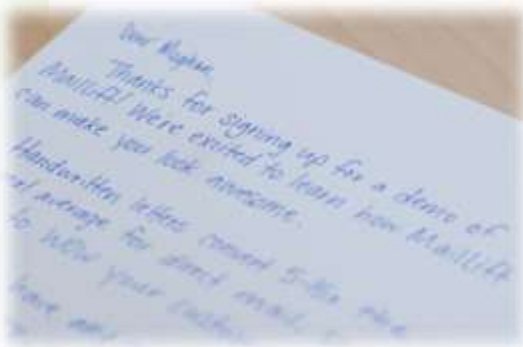 Dear Meghan,
Thanks for signing up for a demo of
MailLift! We're excited to learn how MailLift
can make you look awesome.
Handwritten letters convert 5-10x the
average for direct mail,
to WOW your
have